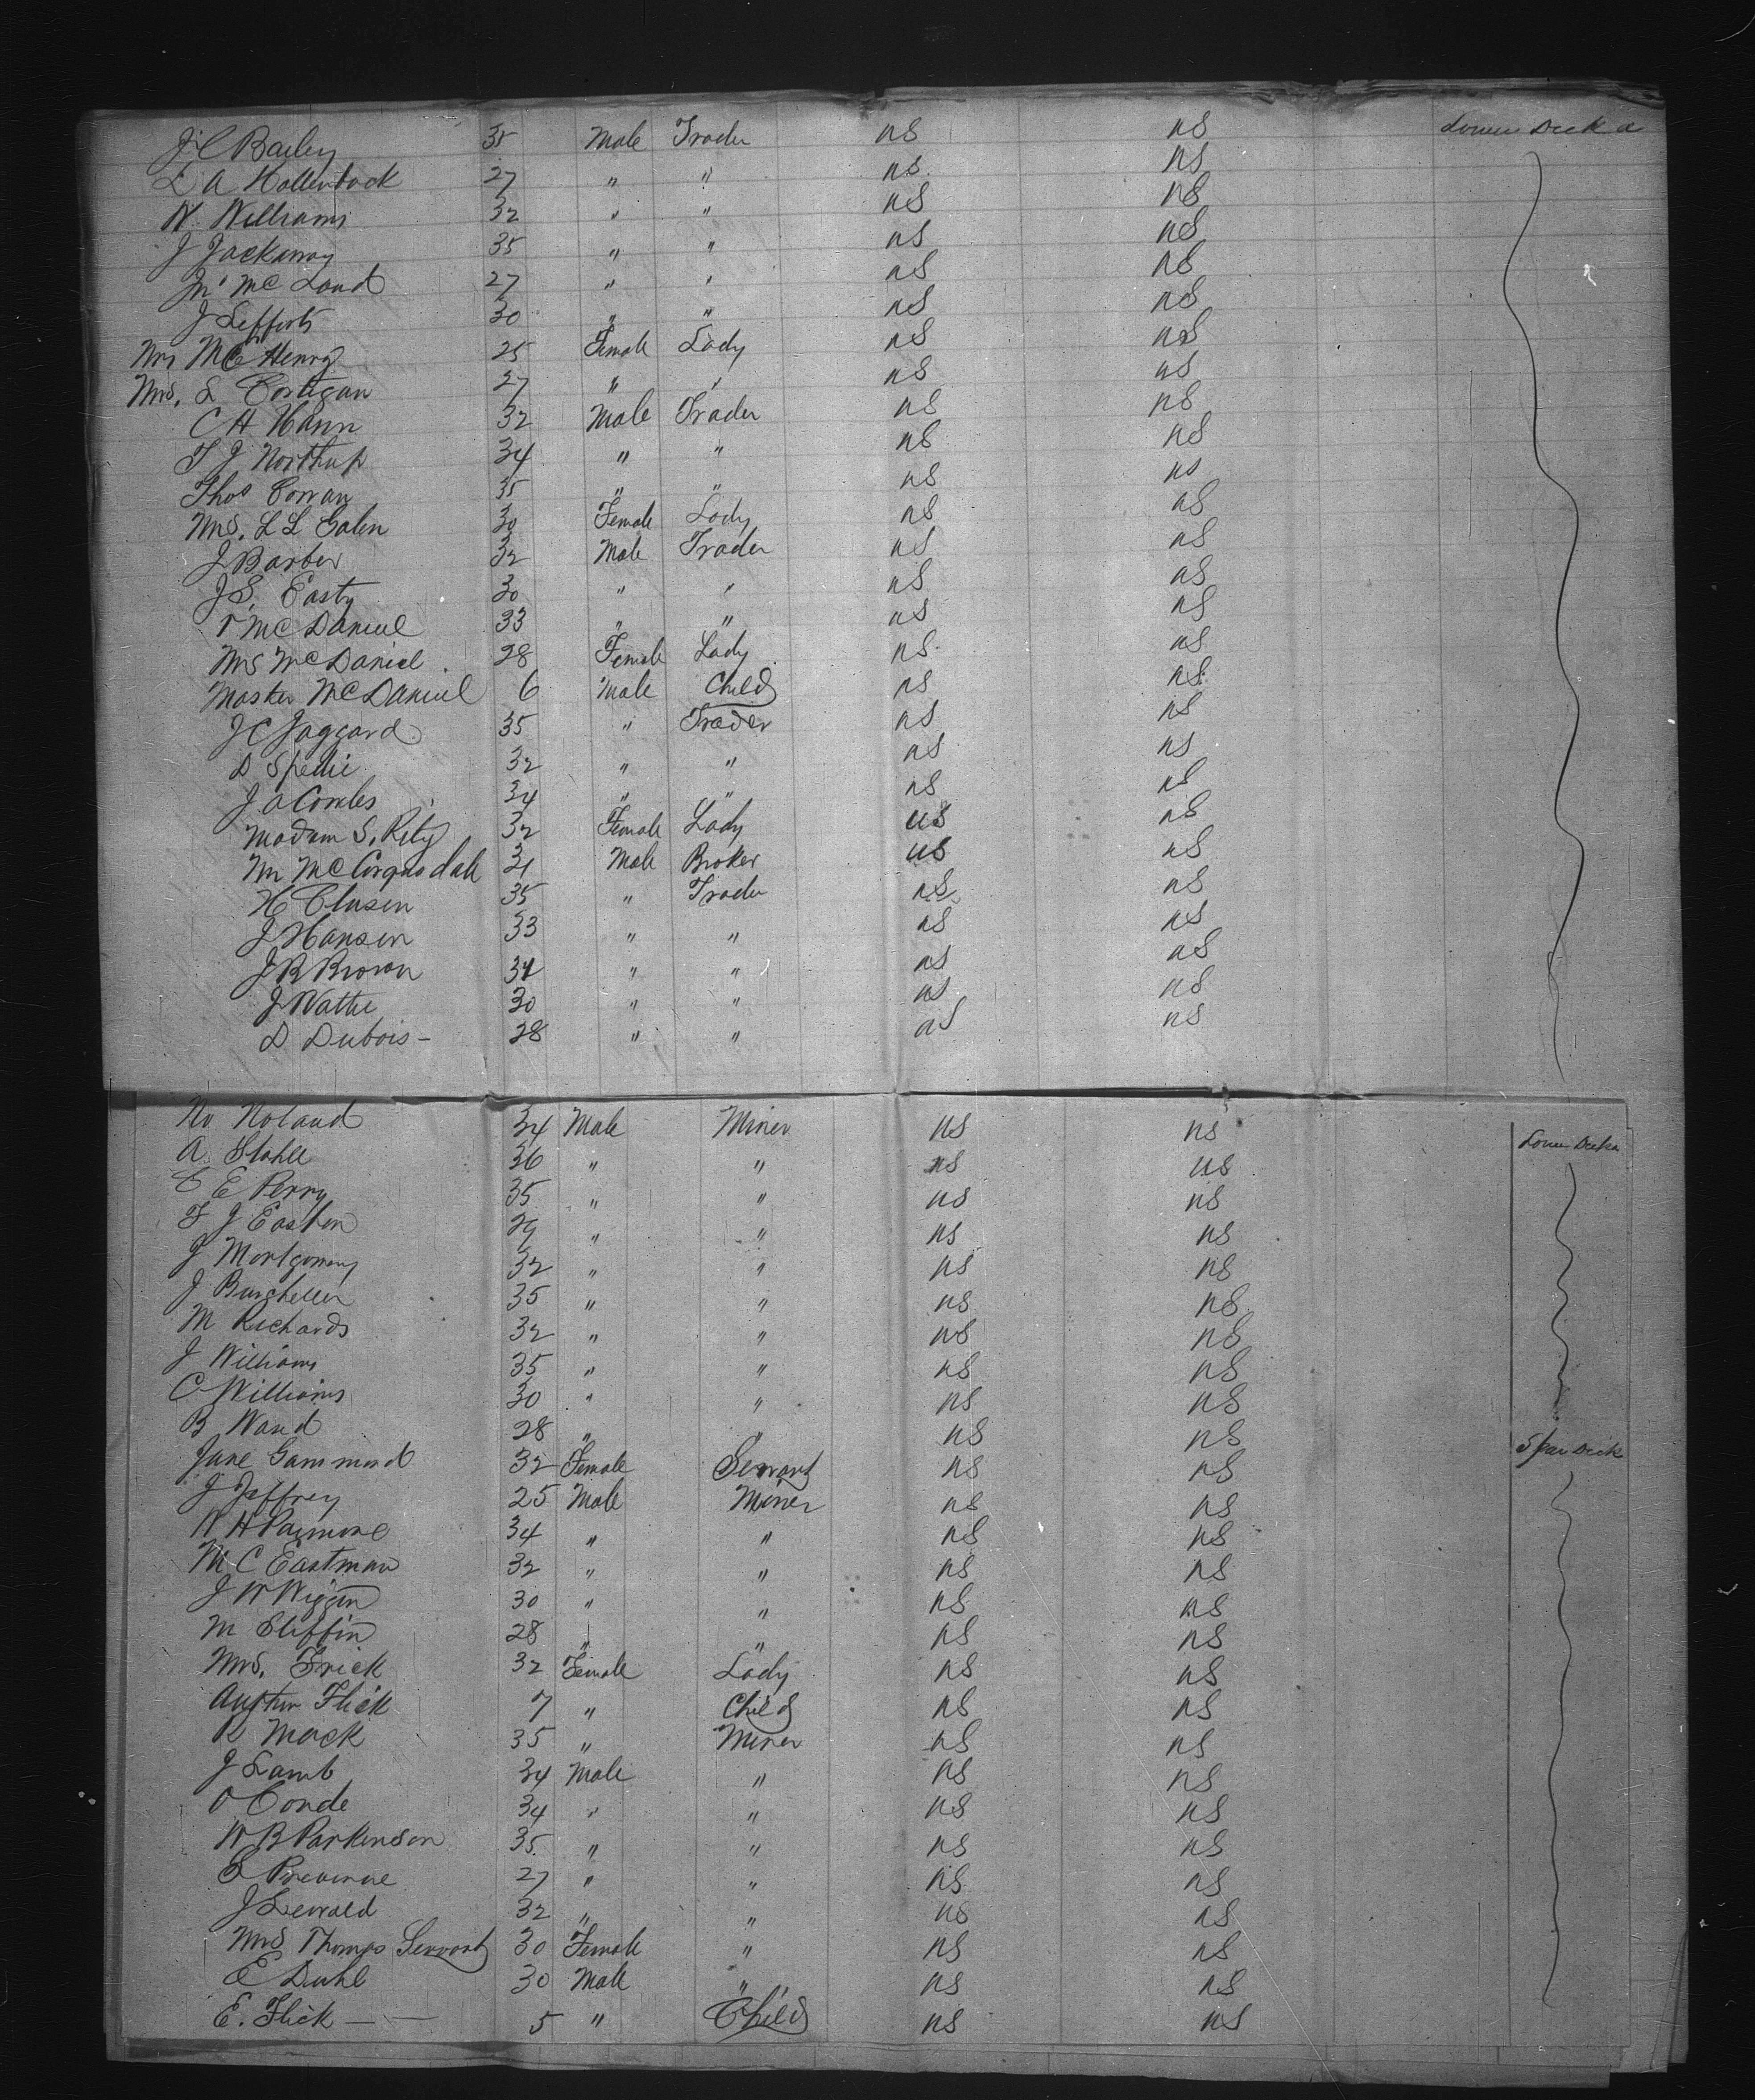 J C Bailey 35 Male Trader US US Lower Deck a
L A Hollenback 27 " " US US
W. Williams 32 " " US US
J Jackaway 35 " " US US
Mc Loud 27 " " US US
J Lefforts 30 " " US US
Mrs McHenry 25 Female Lady US US
Mrs. L Costigan 27 " " US US
C H Hann 32 Male Trader US US
T J Northup 34 " " US US
Thos Corran 35 " " US US
Mrs. L L Galen 30 Female Lady US US
J Barber 32 Male Trader US US
J S. Easty 30 " " US US
McDaniel 33 " " US US
Mrs McDaniel 28 Female Lady US US
Master McDaniel 6 Male Child US US
J C Jaggard 35 " Trader US US
D 32 " " US US
J A Combs 34 " " US US
Madam S. 32 Female Lady US US
Male Broker US US
H Clusen 35 " Trader US US
J Hansen 33 " " US US
J B Brown 34 " " US US
J Wattie 30 " " US US
D Dubois - 28 " " US US
Noland 34 Male Miner US US Lower Deck a
A. Stahle 36 " " US US
C E Perry 35 " " US US
F J Easten 29 " " US US
J Montgomery 32 " " US US
J 35 " " US US
M Richards 32 " " US US
J Williams 35 " " US US
C Williams 30 " " US US
B Ward 28 " " US US
Jane Gammond 32 Female Servant US US Spar Deck
J Jeffrey 25 Male Miner US US
W H 34 " " US US
M C Eastman 32 " " US US
J W Wiggin 30 " " US US
M 28 " " US US
Mrs. Frick 32 Female Lady US US
Flick 7 " Child US US
R Mack 35 " Miner US US
J Lamb 34 Male " US US
O Conde 34 " " US US
W B Parkenson 35. " " US US
27 " " US US
J Lewald 32 " " US US
Mrs Thomps Servant 30 Female " US US
E Duhl 30 Male " US US
E. Flick — — 5 " Child US US